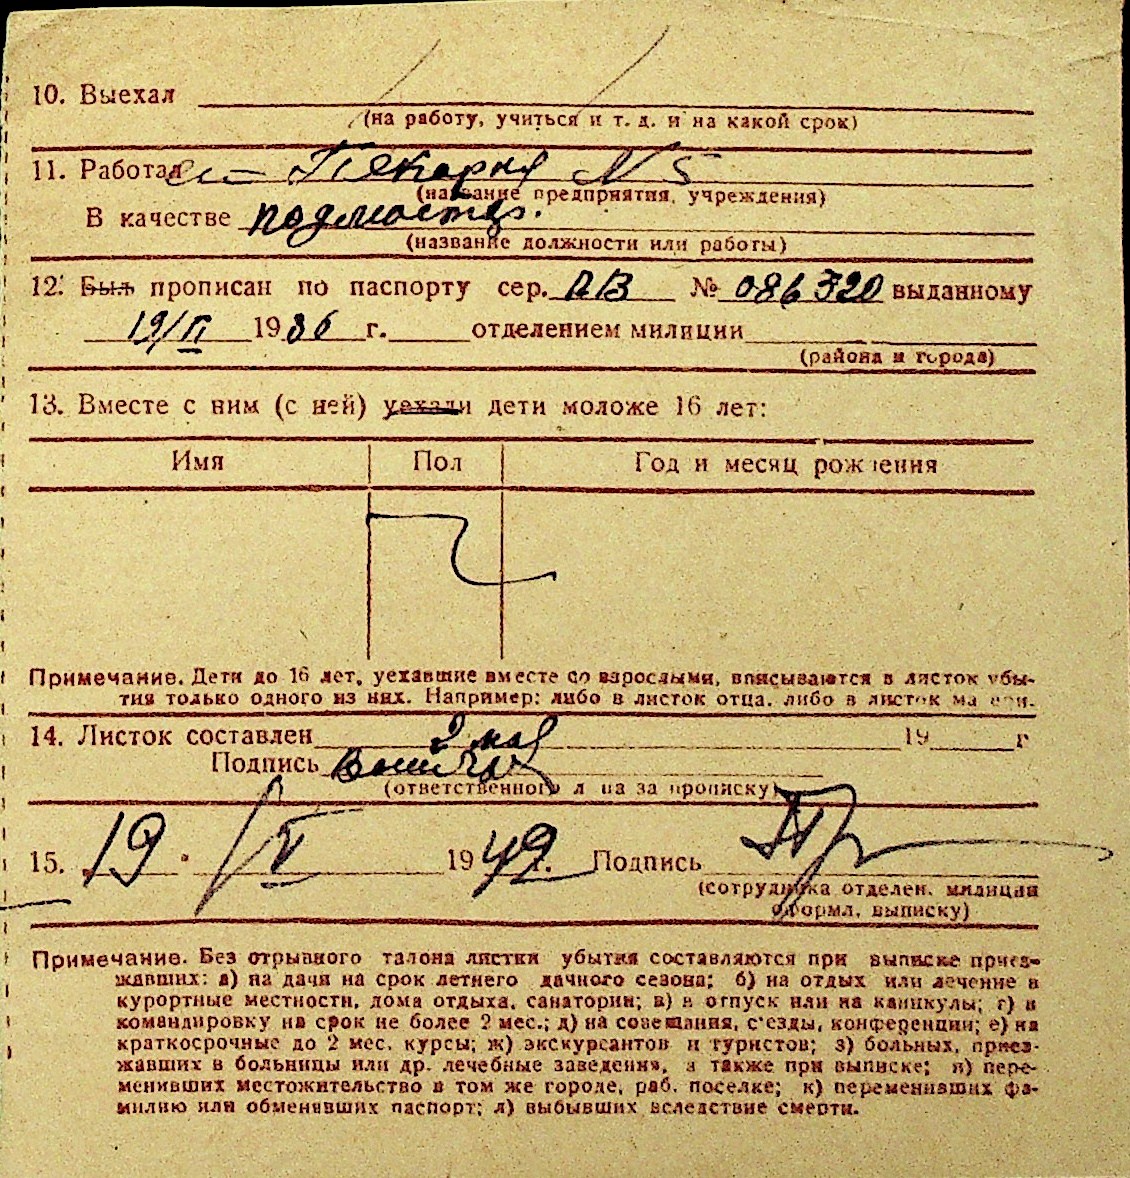 10. Выехал
(на работу, учиться и т. д. и на какой срок)
11. Работает Пекарня N 5
(название предприятия, учреждения)
В качестве подмастер.
(название должности или работы)
12. Был прописан по паспорту сер. № 086320 выданному
19/II 19 г. отделением милиции
(района и города)
13. Вместе с ним (с ней) уехали дети моложе 16 лет:
Имя Пол Год и месяц рождения
Примечание. Дети до 16 лет, уехавшие вместе со взрослыми, вписываются в листок убы-
тия только одного из них. Например: либо в листок отца, либо в листок матери.
14. Листок составлен 2 мая 19 г
Подпись
(ответственного лица за прописку)
15. 19. /V 1949. Подпись
(сотрудника отделен. милиции
оформл. выписку)
Примечание. Без отрывного талона листки убытия составляются при выписке приез-
жавших: а) на дачи на срок летнего дачного сезона; б) на отдых или лечение в
курортные местности, дома отдыха, санатории; в) в отпуск или на каникулы; г) в
командировку на срок не более 2 мес.; д) на совещания, с'езды, конференции; е) на
краткосрочные до 2 мес. курсы; ж) экскурсантов и туристов; з) больных, приез-
жавших в больницы или др. лечебные заведения, а также при выписке; и) пере-
менивших местожительство в том же городе, раб. поселке; к) переменивших фа-
милию или обменявших паспорт; л) выбывших вследствие смерти.